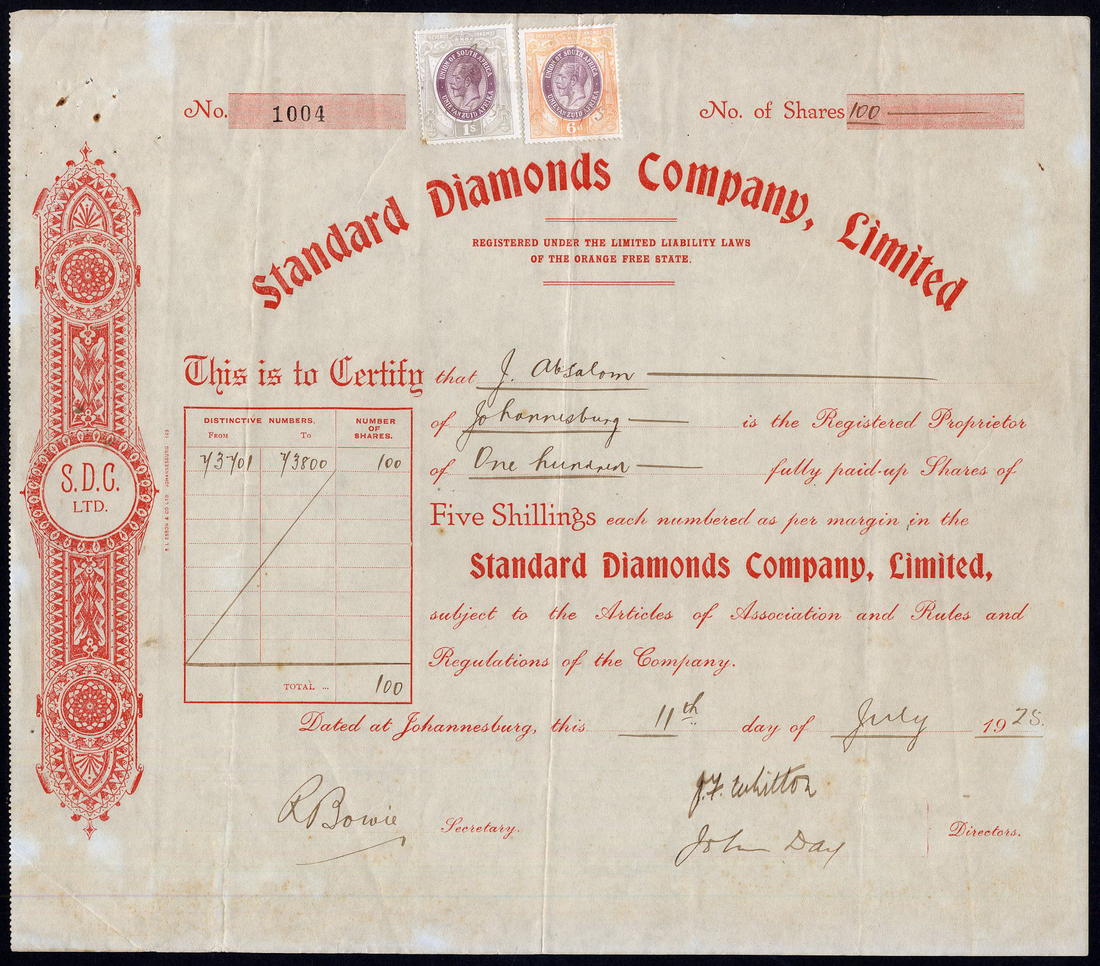 REVENUE INKOMST
UNION OF SOUTH AFRICA
UNIE VAN ZUID AFRIKA
1S
UNION OF SOUTH AFRICA
UNIE VAN ZUID AFRIKA
6d
No. 1004
No. of Shares 100
Standard Diamonds Company, Limited
REGISTERED UNDER THE LIMITED LIABILITY LAWS
OF THE ORANGE FREE STATE.
This is to Certify that J. Absalom
of Johannesburg is the Registered Proprietor
of One hundred fully paid-up Shares of
Five Shillings each numbered as per margin in the
Standard Diamonds Company, Limited,
subject to the Articles of Association and Rules and
Regulations of the Company.
DISTINCTIVE NUMBERS. NUMBER OF SHARES.
FROM TO
73701 73800 100
TOTAL ... 100
S.D.C.
LTD.
Dated at Johannesburg, this 11th day of July 1925.
R Bowie Secretary.
J.F. Whitton
John Day
Directors.